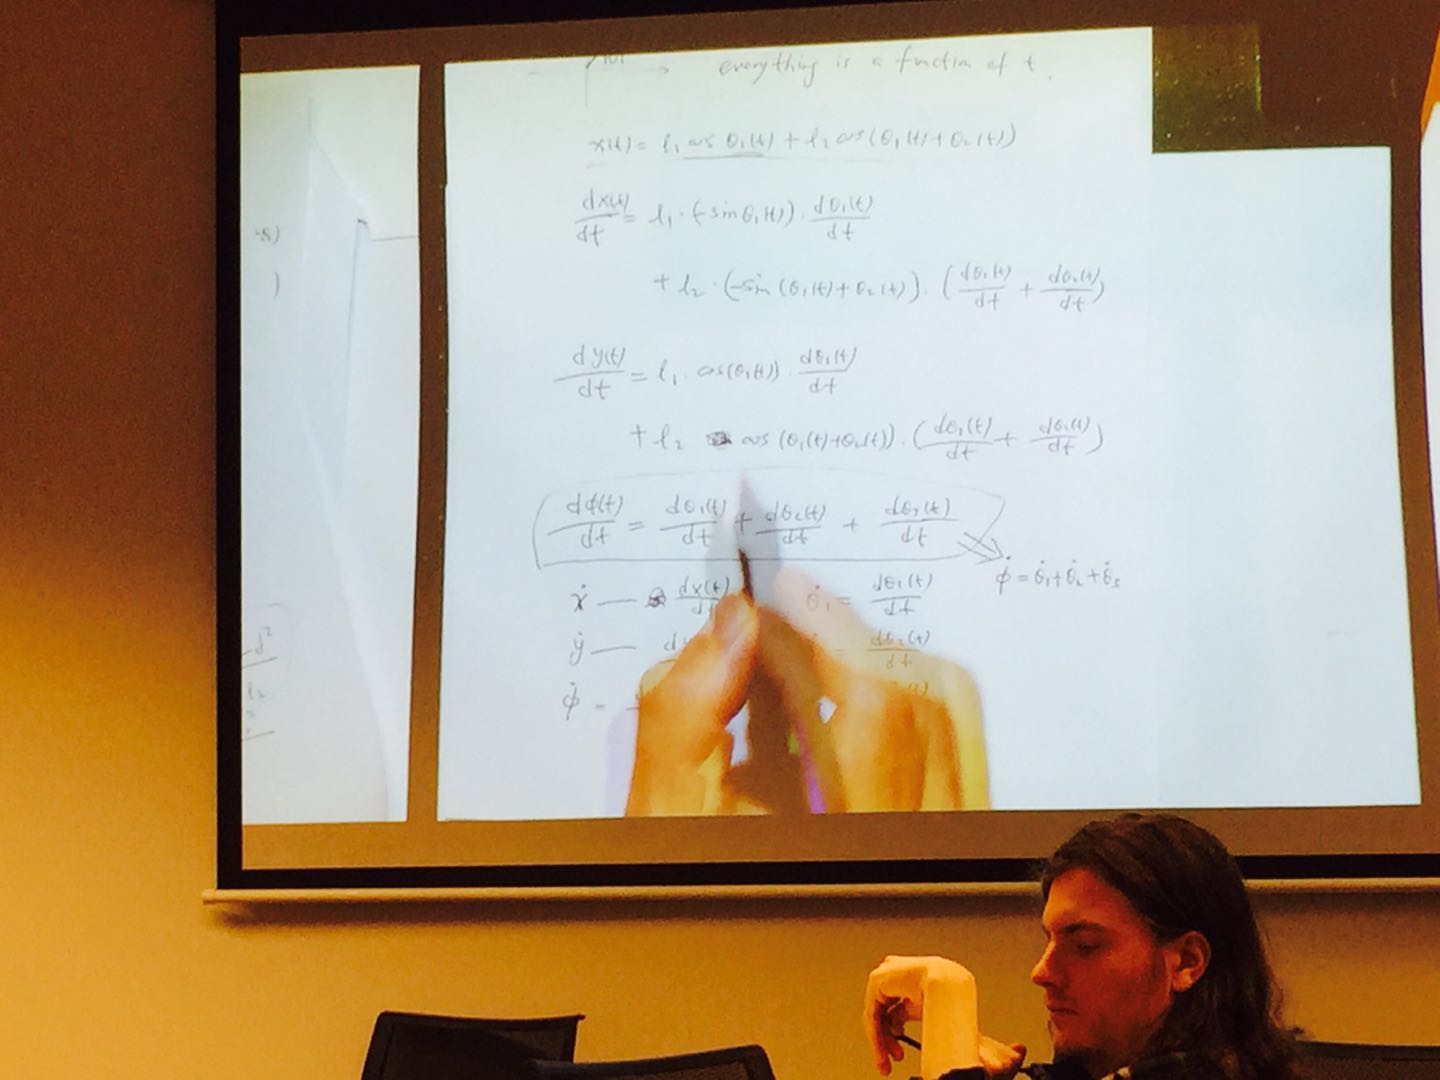 everything is a function of t.
x(t) = l₁ cos θ₁(t) + l₂ cos(θ₁(t)+θ₂(t))
dx(t)/dt = l₁·(-sin θ₁(t))·dθ₁(t)/dt
+ l₂·(-sin(θ₁(t)+θ₂(t)))·(dθ₁(t)/dt + dθ₂(t)/dt)
dy(t)/dt = l₁·cos(θ₁(t))·dθ₁(t)/dt
+ l₂ cos(θ₁(t)+θ₂(t))·(dθ₁(t)/dt + dθ₂(t)/dt)
dϕ(t)/dt = dθ₁(t)/dt + dθ₂(t)/dt + dθ₃(t)/dt
ϕ̇ = θ̇₁+θ̇₂+θ̇₃
ẋ — dx(t)/dt θ̇₁ = dθ₁(t)/dt
ẏ — = dθ₂(t)/dt
ϕ̇ =